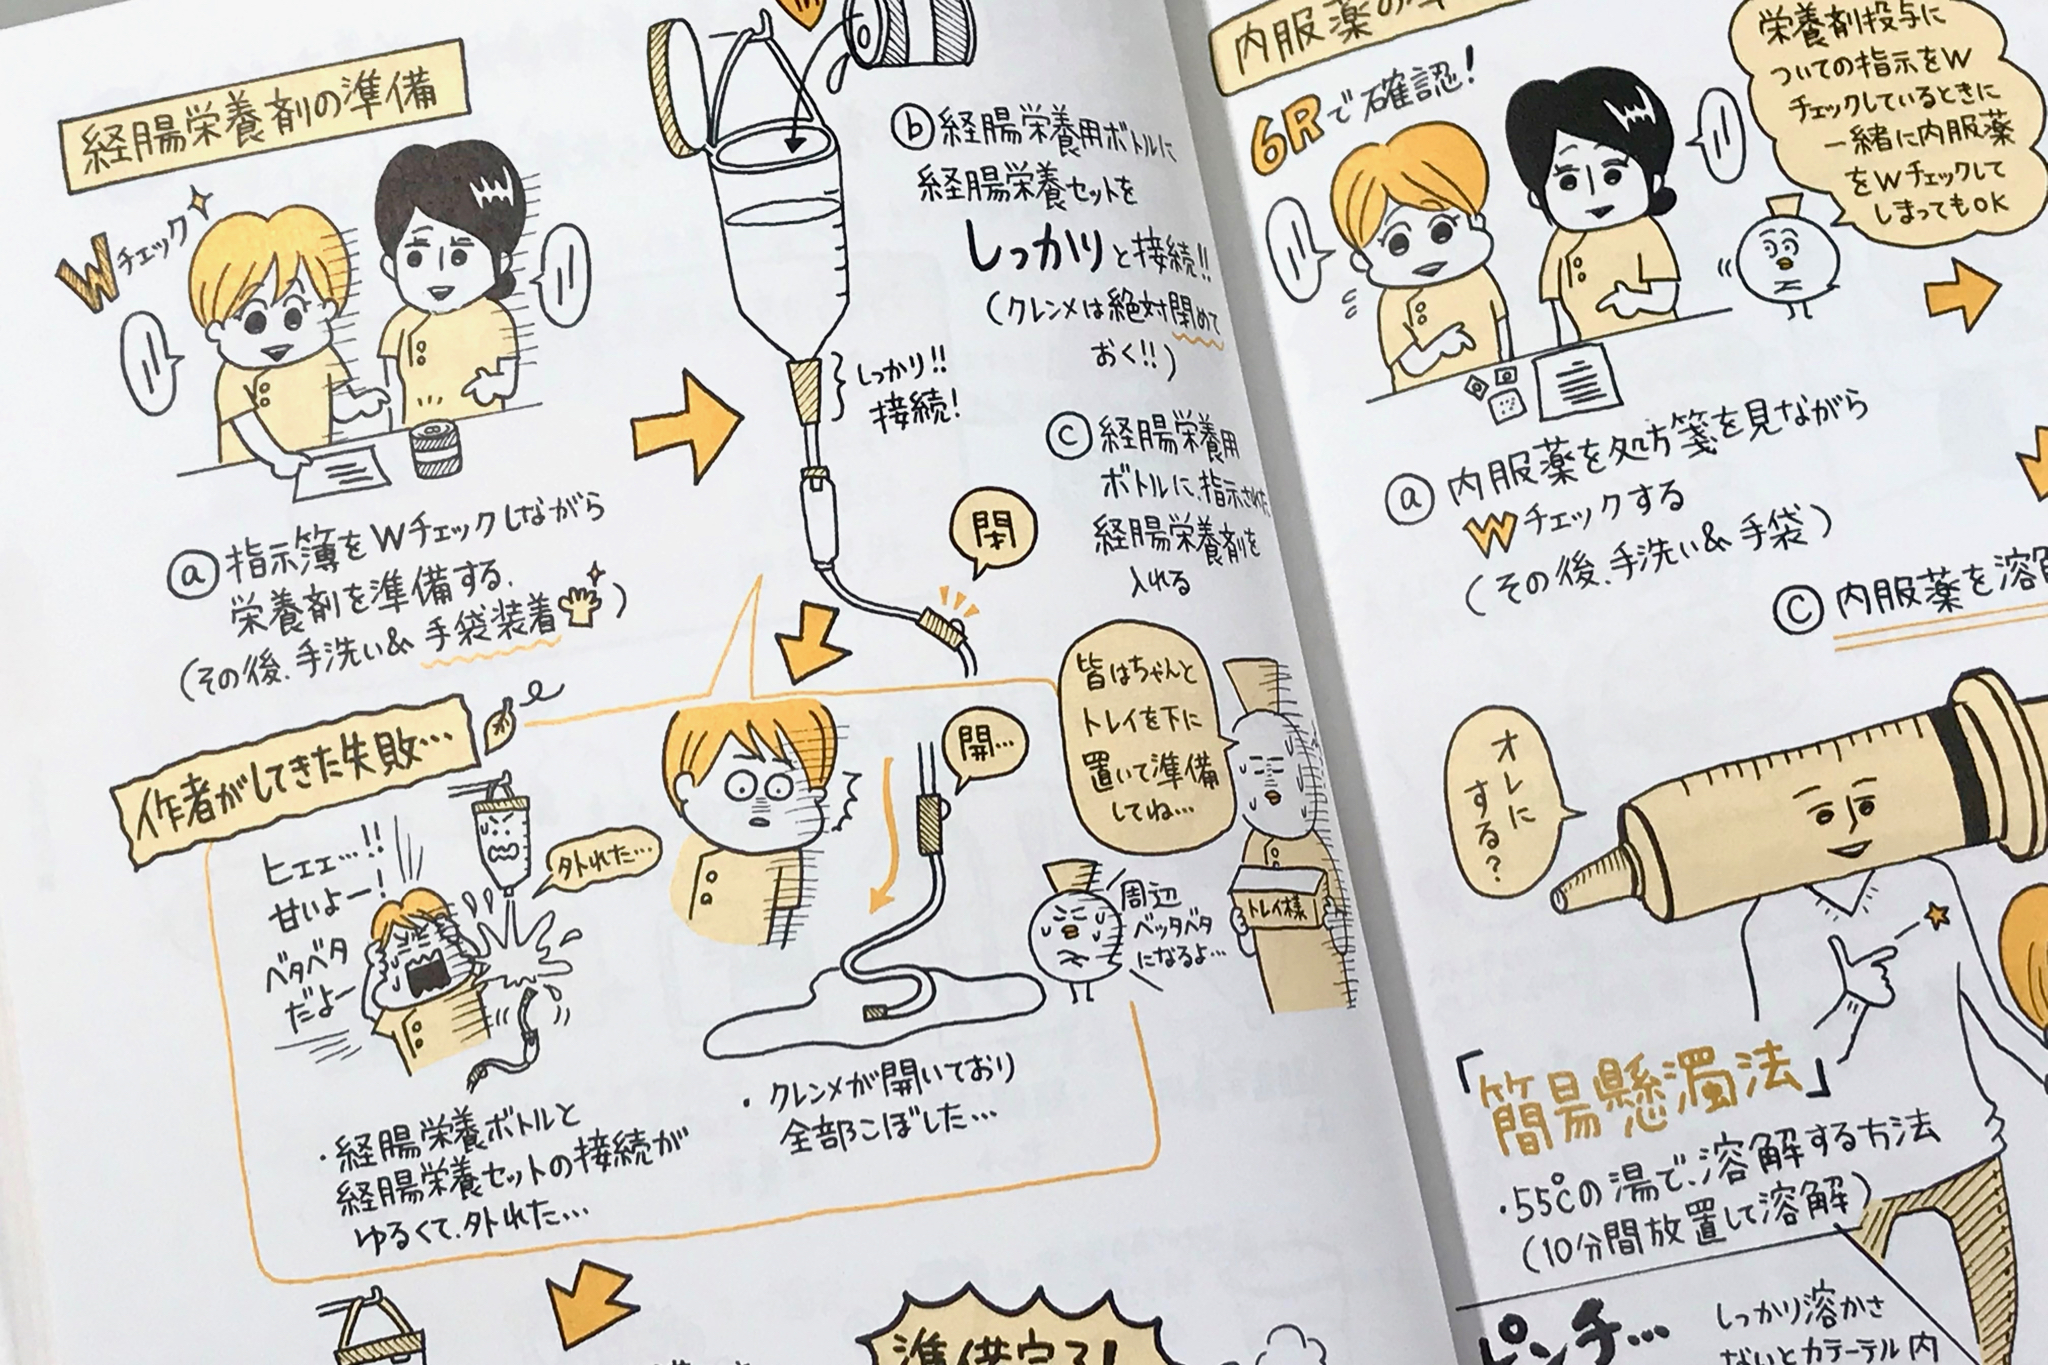 経腸栄養剤の準備
Wチェック
ⓐ指示簿をWチェックしながら
栄養剤を準備する.
(その後、手洗い&手袋装着)
ⓑ経腸栄養用ボトルに
経腸栄養セットを
しっかりと接続!!
(クレンメは絶対閉めて
おく!!)
しっかり!!
接続!
ⓒ経腸栄養用
ボトルに、指示された
経腸栄養剤を
入れる
閉
作者がしてきた失敗…
ヒェェ…!!
甘いよー!
ベタベタ
だよー
外れた…
・経腸栄養ボトルと
経腸栄養セットの接続が
ゆるくて、外れた…
開…
・クレンメが開いており
全部こぼした…
皆はちゃんと
トレイを下に
置いて準備
してね…
周辺
ベッタベタ
になるよ…
トレイ様
準備完了!
内服薬の
6Rで確認!
栄養剤投与に
ついての指示をW
チェックしているときに
一緒に内服薬
をWチェックして
しまってもOK
ⓐ内服薬を処方箋を見ながら
Wチェックする
(その後、手洗い&手袋)
ⓒ内服薬を溶解
オレに
する?
「簡易懸濁法」
・55℃の湯で、溶解する方法
(10分間放置して溶解)
ピンチ…
しっかり溶かさ
ないとカテーテル内